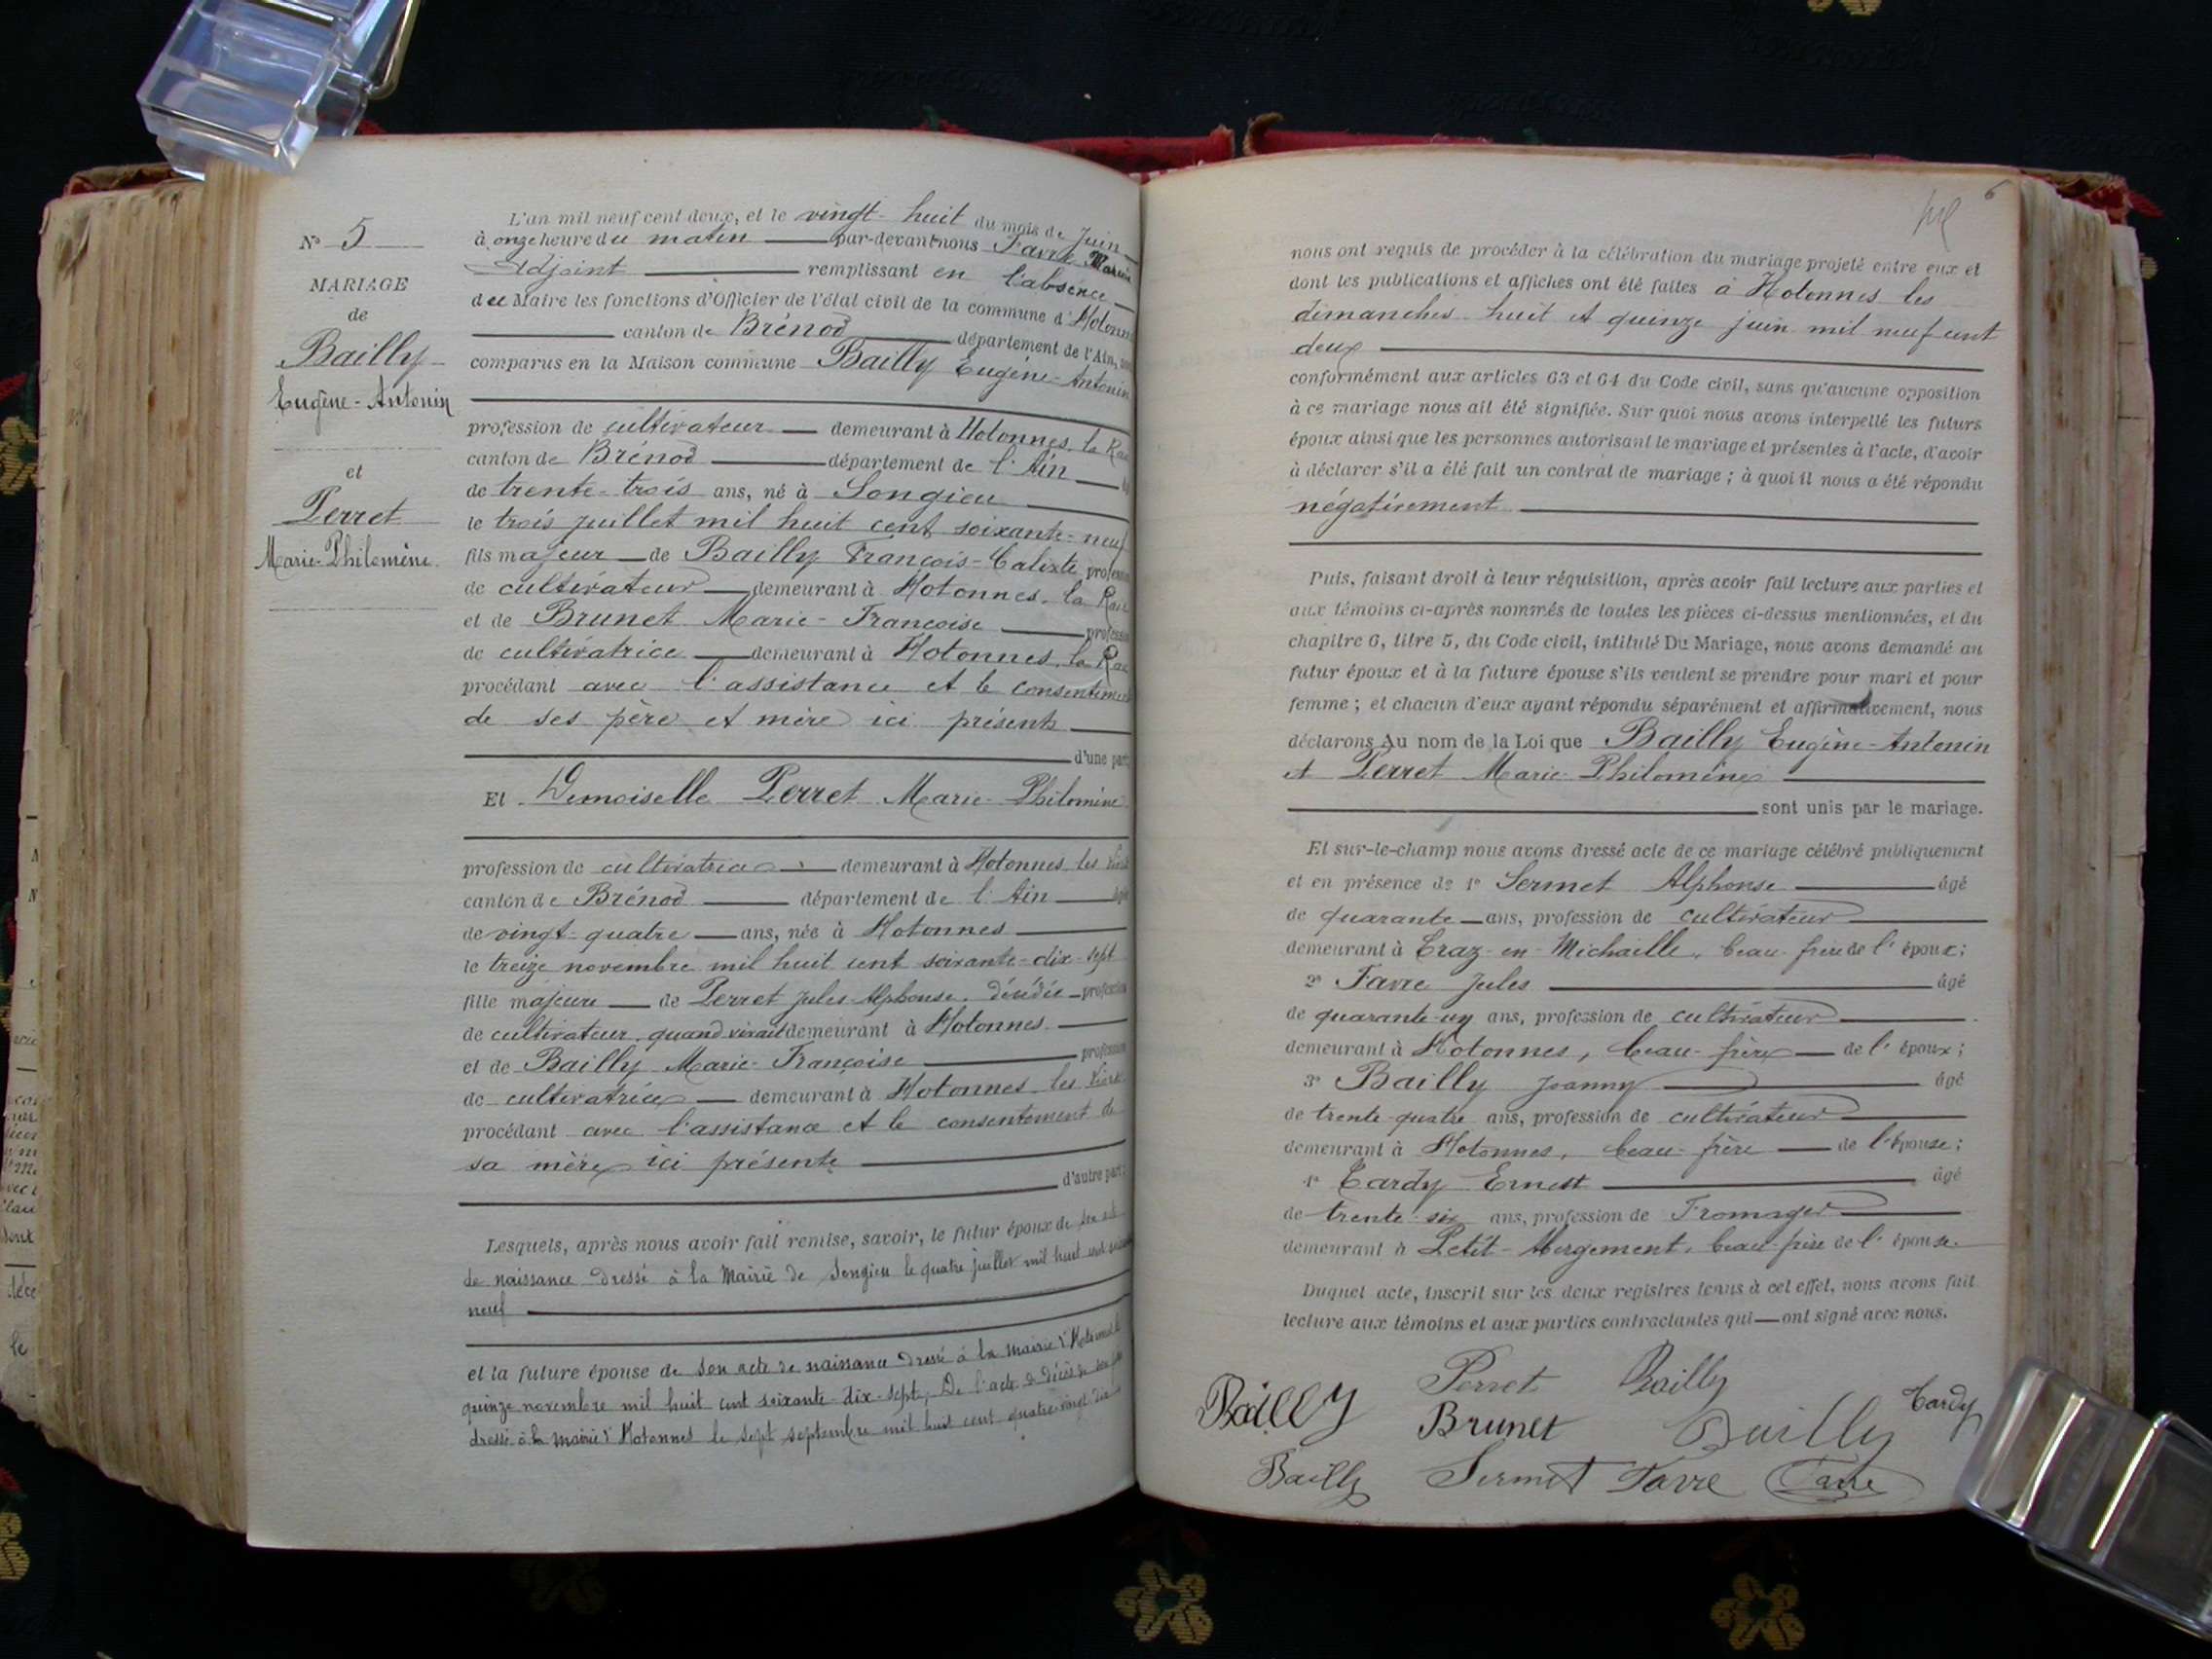 N° 5
MARIAGE
de
Bailly
Eugène-Antonin
et
Perret
Marie-Philomène
L'an mil neuf cent deux, et le vingt-huit du mois de Juin
à onze heure du matin par-devant nous Favre
Adjoint remplissant en l'absence
du Maire les fonctions d'Officier de l'état civil de la commune d'Hotonnes
canton de Brénod département de l'Ain,
comparus en la Maison commune Bailly Eugène-Antonin
profession de cultivateur demeurant à Hotonnes, la
canton de Brénod département de l'Ain
de trente-trois ans, né à Songieu
le trois juillet mil huit cent soixante-neuf
fils majeur de Bailly François-Calixte profession
de cultivateur demeurant à Hotonnes, la
et de Brunet Marie-Françoise profession
de cultivatrice demeurant à Hotonnes, la
procédant avec l'assistance et le consentement
de ses père et mère ici présents
d'une part
Et Demoiselle Perret Marie-Philomène
profession de cultivatrice demeurant à Hotonnes, les
canton de Brénod département de l'Ain
de vingt-quatre ans, née à Hotonnes
le treize novembre mil huit cent soixante-dix-sept
fille majeure de Perret Jules-Alphonse, décédé profession
de cultivateur, quand vivait demeurant à Hotonnes
et de Bailly Marie-Françoise profession
de cultivatrice demeurant à Hotonnes, les
procédant avec l'assistance et le consentement de
sa mère ici présente
d'autre part;
Lesquels, après nous avoir fait remise, savoir, le futur époux de son acte
de naissance dressé à la Mairie de Songieu le quatre juillet mil huit cent soixante
neuf
et la future épouse de son acte de naissance dressé à la mairie d'Hotonnes le
quinze novembre mil huit cent soixante-dix-sept, De l'acte de décès de son père
dressé à la mairie d'Hotonnes le sept septembre mil huit cent quatre-vingt
6
nous ont requis de procéder à la célébration du mariage projeté entre eux et
dont les publications et affiches ont été faites à Hotonnes les
dimanches huit et quinze juin mil neuf cent
deux
conformément aux articles 63 et 64 du Code civil, sans qu'aucune opposition
à ce mariage nous ait été signifiée. Sur quoi nous avons interpellé les futurs
époux ainsi que les personnes autorisant le mariage et présentes à l'acte, d'avoir
à déclarer s'il a été fait un contrat de mariage ; à quoi il nous a été répondu
négativement
Puis, faisant droit à leur réquisition, après avoir fait lecture aux parties et
aux témoins ci-après nommés de toutes les pièces ci-dessus mentionnées, et du
chapitre 6, titre 5, du Code civil, intitulé Du Mariage, nous avons demandé au
futur époux et à la future épouse s'ils veulent se prendre pour mari et pour
femme ; et chacun d'eux ayant répondu séparément et affirmativement, nous
déclarons Au nom de la Loi que Bailly Eugène-Antonin
et Perret Marie-Philomène
sont unis par le mariage.
Et sur-le-champ nous avons dressé acte de ce mariage célébré publiquement
et en présence de 1° Sermet Alphonse âgé
de quarante ans, profession de cultivateur
demeurant à Craz-en-Michaille, beau-frère de l'époux;
2° Favre Jules âgé
de quarante-un ans, profession de cultivateur
demeurant à Hotonnes, beau-frère de l'époux;
3° Bailly Joanny âgé
de trente-quatre ans, profession de cultivateur
demeurant à Hotonnes, beau-frère de l'épouse;
4° Cardy Ernest âgé
de trente-six ans, profession de Fromager
demeurant à Petit-Abergement, beau-frère de l'épouse.
Duquel acte, inscrit sur les deux registres tenus à cet effet, nous avons fait
lecture aux témoins et aux parties contractantes qui ont signé avec nous.
Perret Bailly
Bailly Brunet Bailly Cardy
Bailly Sermet Favre Favre